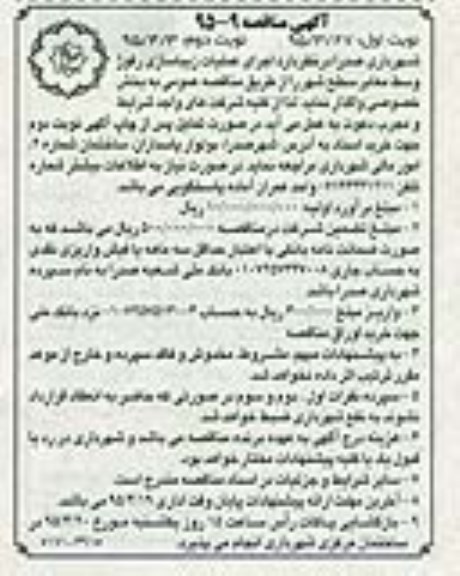 آگهی مناقصه ۹-۹۵
نوبت اول: نوبت دوم:
شهرداری صدرا در نظر دارد اجرای عملیات زیباسازی رفوژ
وسط معابر سطح شهر را از طریق مناقصه عمومی به بخش
خصوصی واگذار نماید. لذا از کلیه شرکت های واجد شرایط
و مجرب دعوت به عمل می آید در صورت تمایل پس از چاپ آگهی نوبت دوم
جهت خرید اسناد به آدرس: شهر صدرا، بولوار پاسداران، ساختمان شماره ۲،
امور مالی شهرداری مراجعه نماید. در صورت نیاز به اطلاعات بیشتر شماره
تلفن واحد عمران آماده پاسخگویی می باشد.
۱- مبلغ برآورد اولیه ریال
۲- مبلغ تضمین شرکت در مناقصه ریال می باشد که به
صورت ضمانت نامه بانکی با اعتبار حداقل سه ماهه یا فیش واریزی نقدی
به حساب جاری بانک ملی شعبه صدرا به نام سپرده
شهرداری صدرا باشد.
۳- واریز مبلغ ریال به حساب نزد بانک ملی
جهت خرید اوراق مناقصه
۴- به پیشنهادات مبهم، مشروط، مخدوش و فاقد سپرده و خارج از موعد
مقرر ترتیب اثر داده نخواهد شد.
۵- سپرده نفرات اول، دوم و سوم در صورتی که حاضر به انعقاد قرارداد
نشوند به نفع شهرداری ضبط خواهد شد.
۶- هزینه درج آگهی به عهده برنده مناقصه می باشد و شهرداری در رد یا
قبول یک یا کلیه پیشنهادات مختار خواهد بود.
۷- سایر شرایط و جزئیات در اسناد مناقصه مندرج است.
۸- آخرین مهلت ارائه پیشنهادات پایان وقت اداری می باشد.
۹- بازگشایی پاکات رأس ساعت ۱۴ روز یکشنبه مورخ در
ساختمان مرکزی شهرداری انجام می پذیرد.